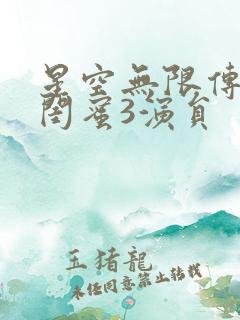 星空無限傳
閨蜜3-演員
玉猪龍
未经同意禁止转载